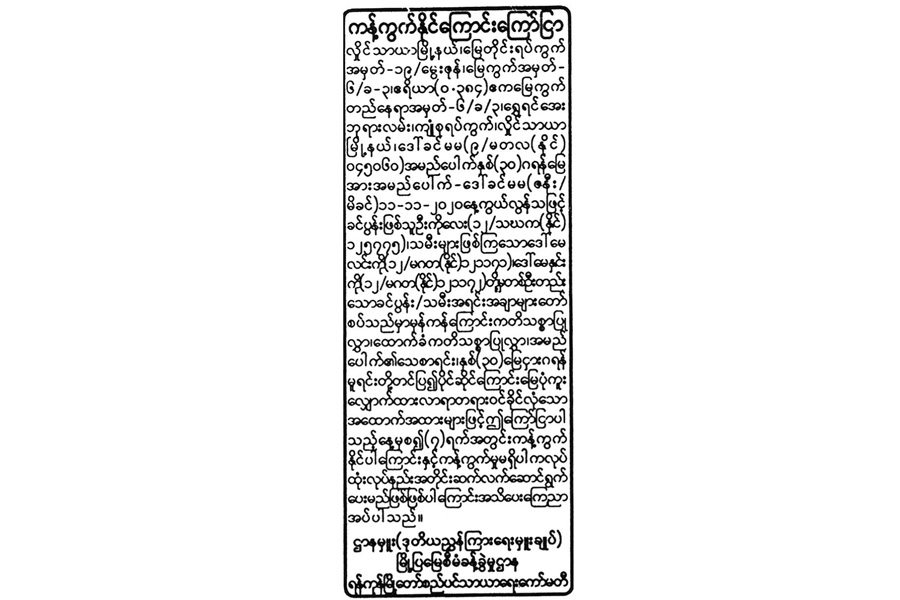 ကန့်ကွက်နိုင်ကြောင်းကြော်ငြာ
လှိုင်သာယာမြို့နယ်၊မြေတိုင်းရပ်ကွက်
အမှတ်-၁၉/မွေးဇုန်၊မြေကွက်အမှတ်-
၆/ခ-၃၊ဧရိယာ(၀.၃၈၄)ဧကမြေကွက်
တည်နေရာအမှတ်-၆/ခ/၃၊ရွှေရင်အေး
ဘုရားလမ်း၊ကျုံစုရပ်ကွက်၊လှိုင်သာယာ
မြို့နယ်၊ဒေါ်ခင်မမ(၉/မတလ(နိုင်)
၀၄၅၀၆၀)အမည်ပေါက်နှစ်(၃၀)ဂရန်မြေ
အားအမည်ပေါက်-ဒေါ်ခင်မမ(ဇနီး/
မိခင်)၁၁-၁၁-၂၀၂၀နေ့ကွယ်လွန်သဖြင့်
ခင်ပွန်းဖြစ်သူဦးကိုလေး(၁၂/သဃက(နိုင်)
၁၂၅၇၇၅)၊သမီးများဖြစ်ကြသောဒေါ်မေ
လင်းကို(၁၂/မဂတ(နိုင်)၁၂၁၁၇၁)၊ဒေါ်မေနှင်း
ကို(၁၂/မဂတ(နိုင်)၁၂၁၁၇၂)တို့မှတစ်ဦးတည်း
သောခင်ပွန်း/သမီးအရင်းအချာများတော်
စပ်သည်မှာမှန်ကန်ကြောင်းကတိသစ္စာပြု
လွှာ၊ထောက်ခံကတိသစ္စာပြုလွှာ၊အမည်
ပေါက်၏သေစာရင်း၊နှစ်(၃၀)မြေငှားဂရန်
မူရင်းတို့တင်ပြ၍ပိုင်ဆိုင်ကြောင်းမြေပုံကူး
လျှောက်ထားလာရာတရားဝင်ခိုင်လုံသော
အထောက်အထားများဖြင့်ဤကြော်ငြာပါ
သည့်နေ့မှစ၍(၇)ရက်အတွင်းကန့်ကွက်
နိုင်ပါကြောင်းနှင့်ကန့်ကွက်မှုမရှိပါကလုပ်
ထုံးလုပ်နည်းအတိုင်းဆက်လက်ဆောင်ရွက်
ပေးမည်ဖြစ်ဖြစ်ပါကြောင်းအသိပေးကြေညာ
အပ်ပါသည်။
ဌာနမှူး(ဒုတိယညွှန်ကြားရေးမှူးချုပ်)
မြို့ပြမြေစီမံခန့်ခွဲမှုဌာန
ရန်ကုန်မြို့တော်စည်ပင်သာယာရေးကော်မတီ